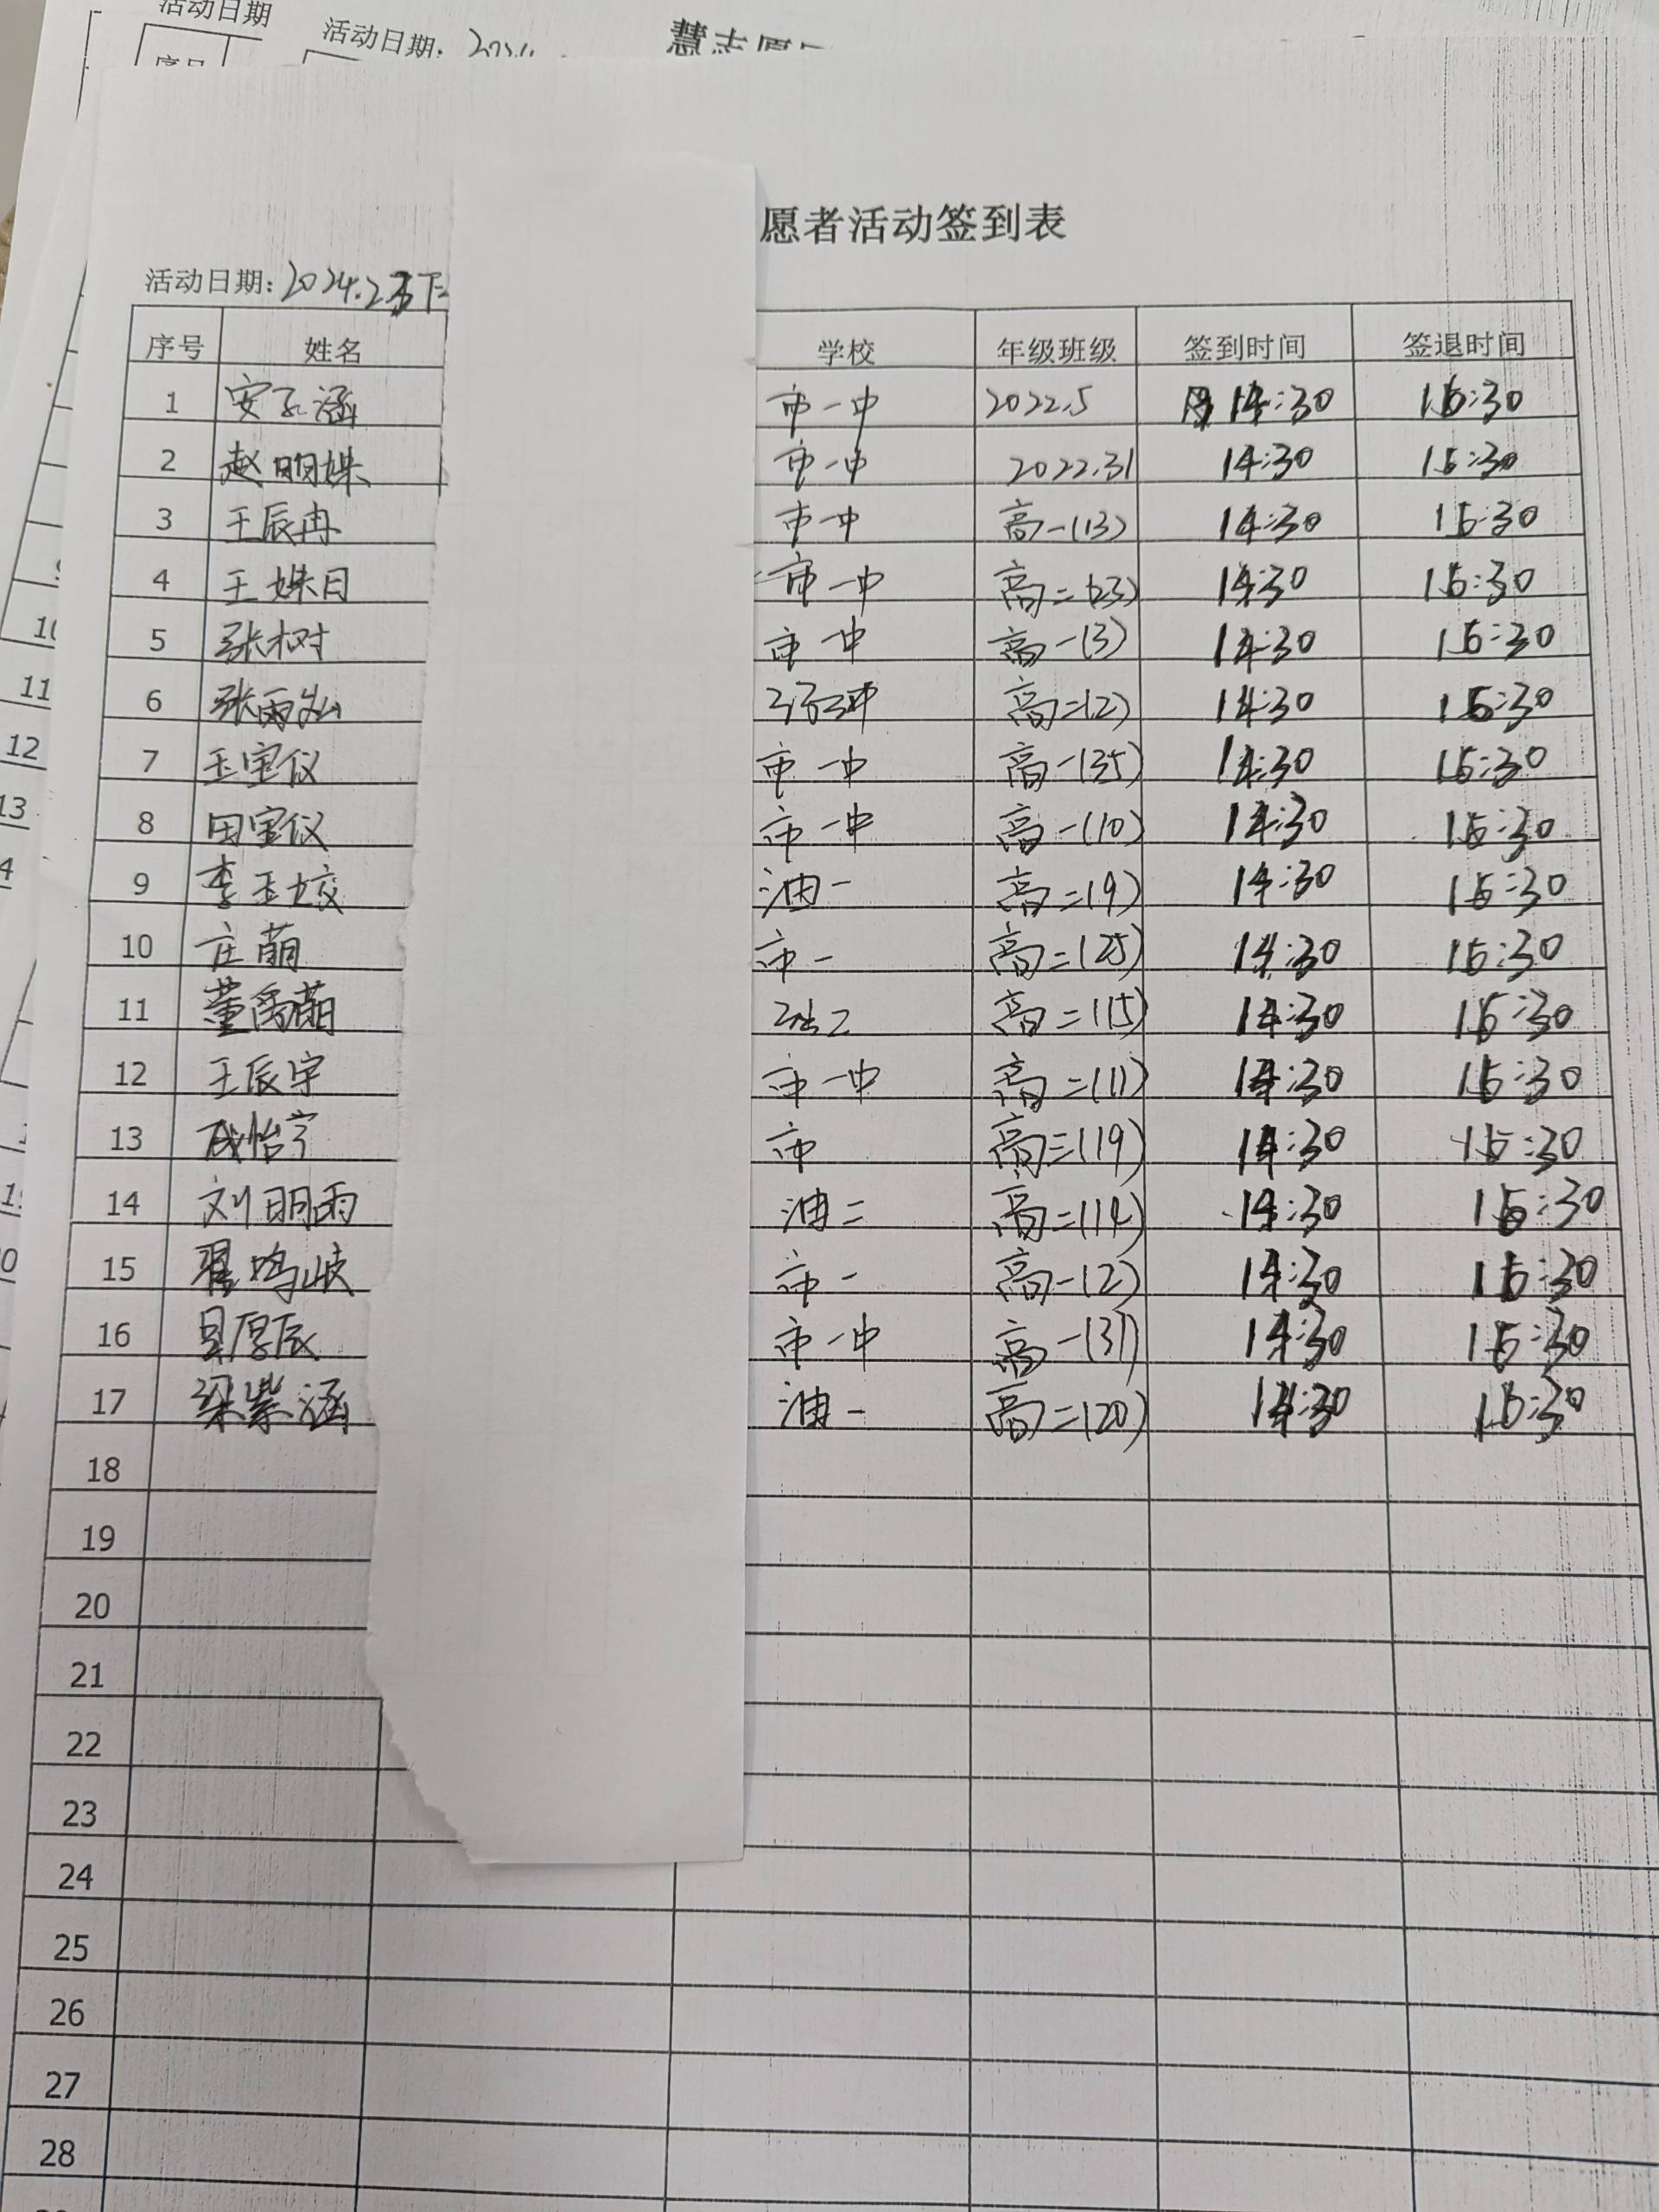 活动日期
活动日期:
序号
愿者活动签到表
活动日期: 2024.2
序号 姓名 学校 年级班级 签到时间 签退时间
1 安子涵 市一中 2022.5 14:30 16:30
2 赵明姝 市一中 2022.31 14:30 16:30
3 王辰冉 市一中 高一(13) 14:30 16:30
4 王姝日 市一中 高二(23) 14:30 16:30
5 张树 市一中 高一(3) 14:30 16:30
6 张雨 高二(2) 14:30 16:30
7 王宝仪 市一中 高一(35) 14:30 16:30
8 田宝仪 市一中 高一(10) 14:30 16:30
9 李玉姣 油一 高二(9) 14:30 16:30
10 庄萌 市一 高二(25) 14:30 16:30
11 董禹萌 高二(15) 14:30 16:30
12 王辰宇 市一中 高二(11) 14:30 16:30
13 成怡宁 市 高三(19) 14:30 16:30
14 刘明雨 油二 高二(14) 14:30 16:30
15 翟鸣岐 市一 高一(2) 14:30 16:30
16 厚辰 市一中 高一(31) 14:30 16:30
17 梁紫涵 油一 高二(20) 14:30 16:30
18
19
20
21
22
23
24
25
26
27
28